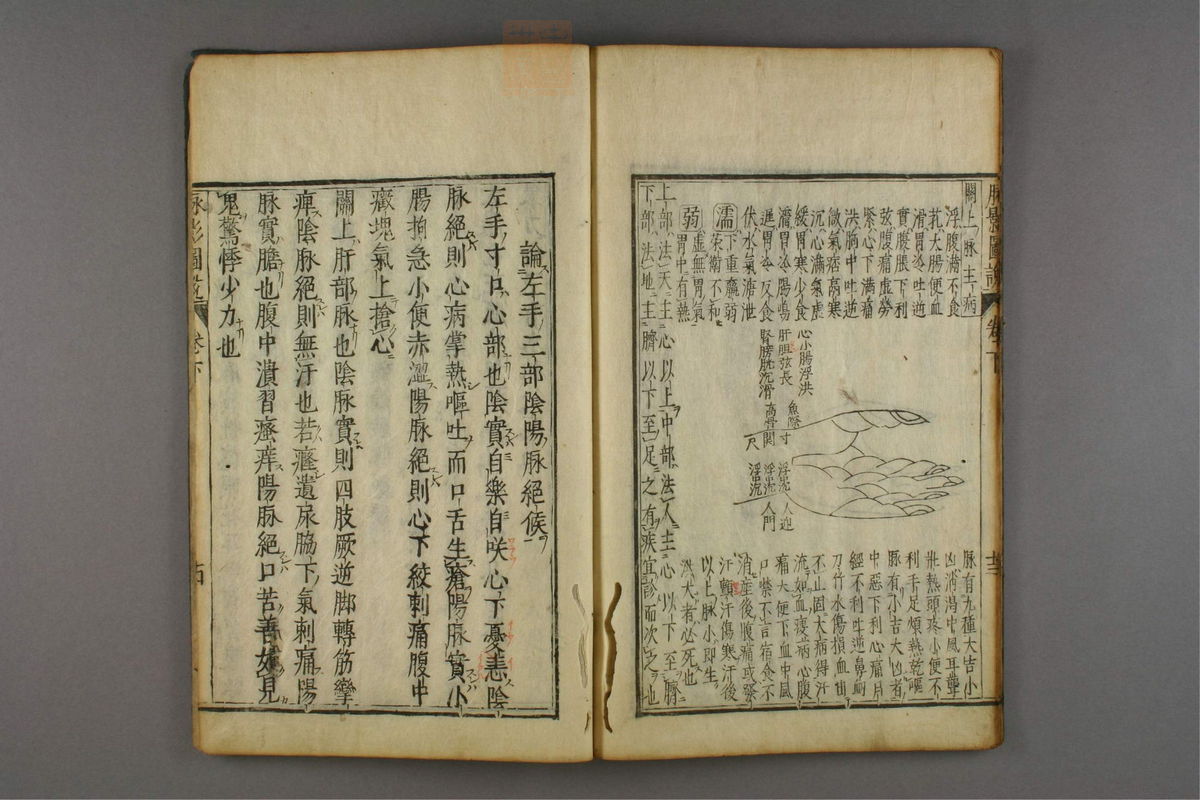 脉影圖說 卷下
關上脉主病
浮腹滿不食
芤大腸便血
滑胃冷吐逆
實腹脹下利
弦腹痛虛勞
緊心下滿痛
洪胸中吐逆
微氣痞膈寒
沉心滿氣虛
緩胃寒少食
濇胃冷腸鳴
遲胃冷反食
伏水氣溏泄
濡
下重羸弱
荣衛不和
弱
虛無胃氣
胃中有熱
上部法天主心以上中部法人主心以下至臍
下部法地主臍以下至足之有疾宜診而次之也
心小腸浮洪
肝胆弦長
腎膀胱沉滑
魚際 寸
高骨 関
尺
人迎
人門
脉有九種大吉小
凶消渴中風耳聾
壯熱頭疼小便不
利手足煩熱乾嘔
脉有小吉大凶者
中惡下利心痛月
經不利吐逆鼻衂
刀竹水傷損血出
不止固大病得汗
流如血疫病心腹
痛大便下血中風
口噤不言宿食不
消產後腹痛或發
汗顫汗傷寒汗後
以上脉小即生
洪大者必死也
論左手三部陰陽脉絕候
左手寸口心部也陰實自樂自咲心下憂恚陰
脉絕則心病掌熱嘔吐而口舌生瘡陽脉實小
腸拘急小便赤澀陽脉絕則心下絞刺痛腹中
癥塊氣上搶心
關上肝部脉也陰脉實則四肢厥逆脚轉筋攣
痺陰脉絕則無汗也若癃遺尿脇下氣刺痛陽
脉實膽也腹中潰習瘙痒陽脉絕口苦善如見
鬼驚悸少力也
脉影圖說 卷下